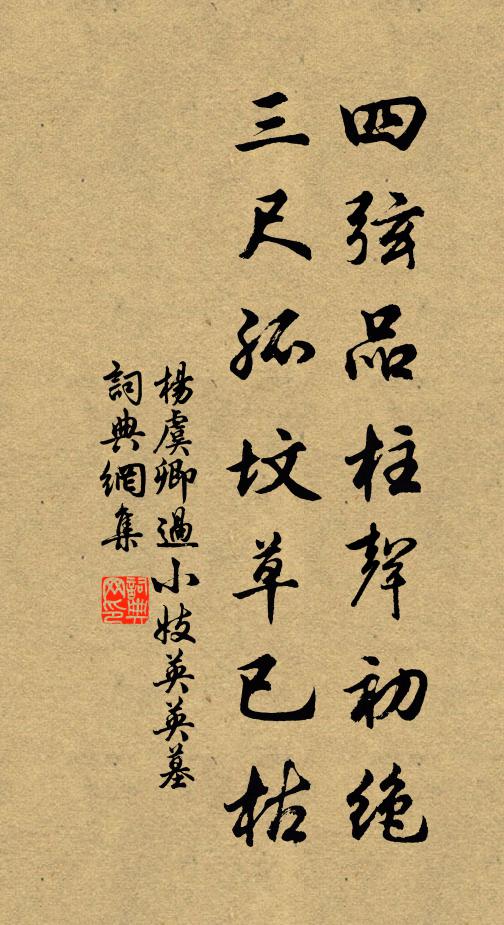 四弦品柱聲初絶
三尺孤坟草已枯
楊虞卿過小妓英英墓
詞典網集
詞典网印